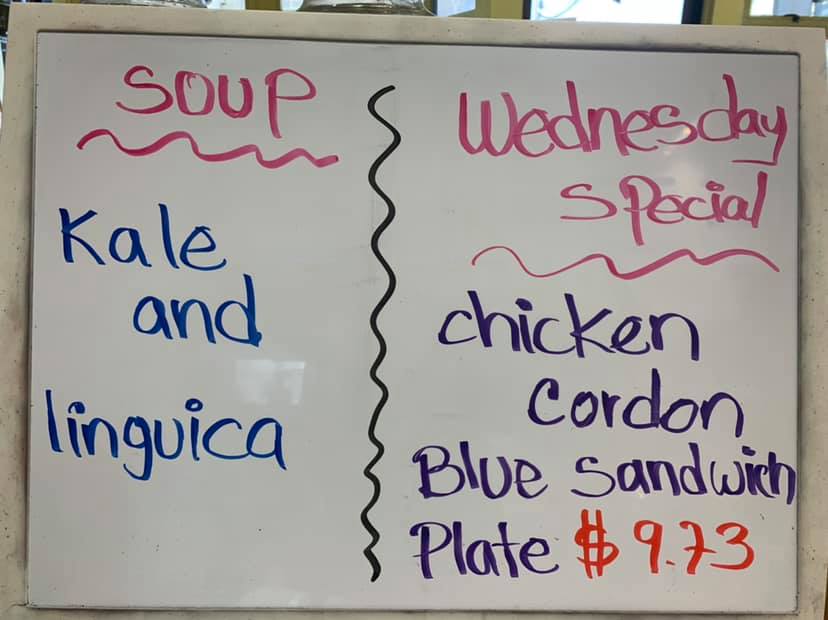 SOUP
Kale
and
linguica
Wednesday
Special
chicken
Cordon
Blue Sandwich
Plate $9.73